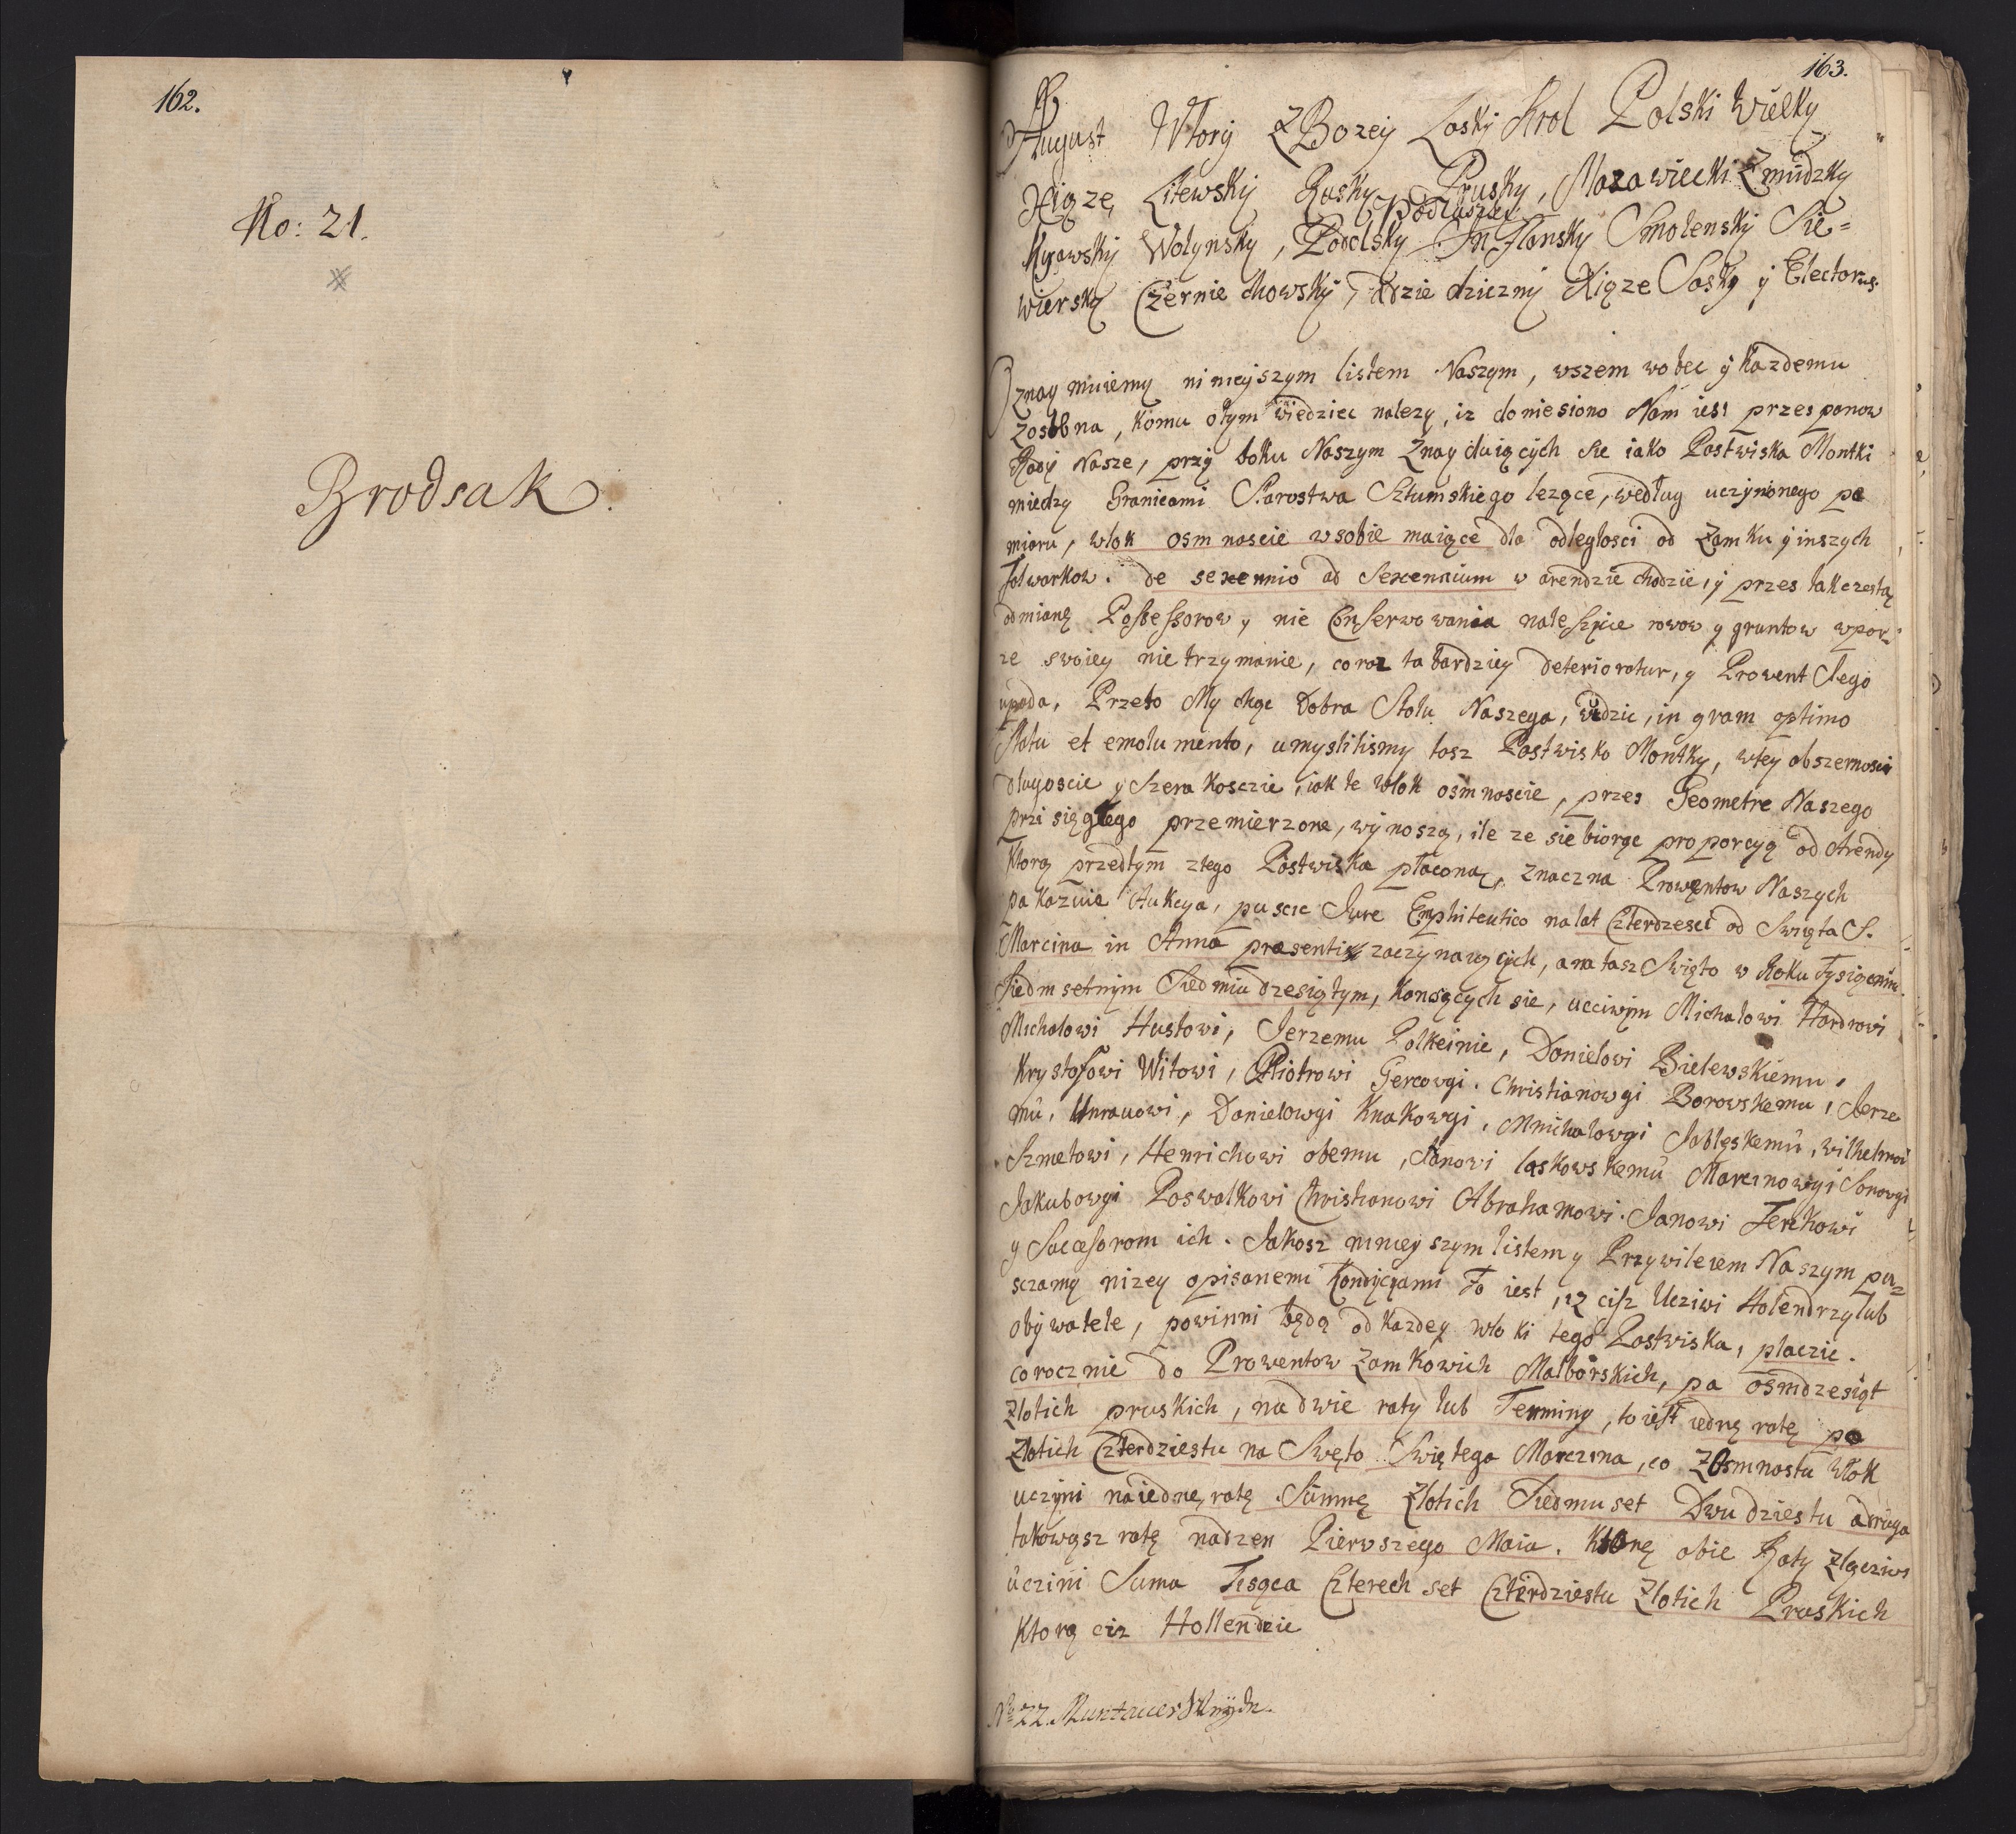 162.
No: 21.
Brodsak.
163.
August Wtory Z Bozey Łasky Krol Polski Wielky
Xiąze Litewsky Rusky, Prusky, Mazawiecki Zmudzky
Kyowsky Wolynsky, Podolsky Podlasky Inflansky Smolensky Sie=
wiersky Czerniechowsky, Dziedziczny Xiąze Sasky y Electorus
Oznaymuiemy ninieyszym listem Naszym, wszem wobec y kazdemu
zosobna, komu otym wiedziec nalezy, iz doniesiono Nam iest przes panow
Rady Nasze, przy boku Naszym Znayduiących sie iako Pastwiska Montki
miedzy Granicami Starostwa Sztumskiego lezące, według uczynionego po
miaru, włok osmnascie wsobie maiące dla odległosci od Zamku y inszych
folwarkow. de sexennio ad Sexennium w arendzie chodzie, y przes takczestą
odmianę Possessorow y nie Conserwowania należycie rowow y gruntow wpor=
ze swoiey nie trzymanie, coraz ta bardziey deterioratur, y Prowent Jego
upada, Przeto My chcąc Dobra Stołu Naszego, widzic, in quam optimo
Statu et emolumento, umyslilismy tosz Pastwisko Montky, wtey obszernoscy
dlugoscie y Szerakosczie, iak te Włok osmnascie, przes Geometre Naszego
przisięgłego przemierzone, wynoszą, ile ze sie biorąc proporcyą od Arendy
ktorą przedtym ztego Pastwiska płaconą, znaczna Prowentow Naszych
pakazuie Aukcya, puscic Jure Emphiteutico na lat Czterdzesci od Swięta S.
Marcina in Anno praesenti zaczynaiących, a na tasz Swięto w Roku Tysiącnym
Siedmsetnym Siedmiudzesiątym, konsących sie, ucciwym Michalowi Hardrowi
Michalowi Hustowi, Jerzemu Polkeinie, Danielowi Bielewskiemu,
Krystofowi Witowi, Piotrowi Gercowgi. Christianowgi Borowskemu, Jerze
mu, Unrauowi, Danielowgi Knakowgi, Mnichalowgi Jablęskemu, wilhelmoi
Szmetowi, Henrichowi obemu, Janowi laskowskemu Marcinowgi Sonowgi
Jakubowgi Poswalkowi Christianowi Abrahamowi. Janowi Ferckowi
y Succesorom ich. Jakosz ninieyszym listem y Przywileiem Naszym pu=
sczamy nizey opisanemi Kondycyami To iest, iz cisz Ucziwi Holendrzy lub
obywatele, powinni będą od kazdey włoki tego Pastwiska, płaczic.
corocznie do Prowentow Zamkowich Malborskich, pa osmdzesiąt
Złotich pruskich, nadwie raty lub Terminy, to iest iednę ratę po
Złotich Czterdziestu na Swęto Swiętego Marczina, co Z Osmnastu Włok
uczyni naiednę ratę Summę Złotich Siedmuset Dwudziestu a druga
takowąsz ratę nadzen Pierwszego Maia. Ktorę obie Raty zlącziws
uczini Suma Tisąca Czterech set Czterdziestu Złotich Pruskich
Ktorą ciz Hollendzie
No 22.